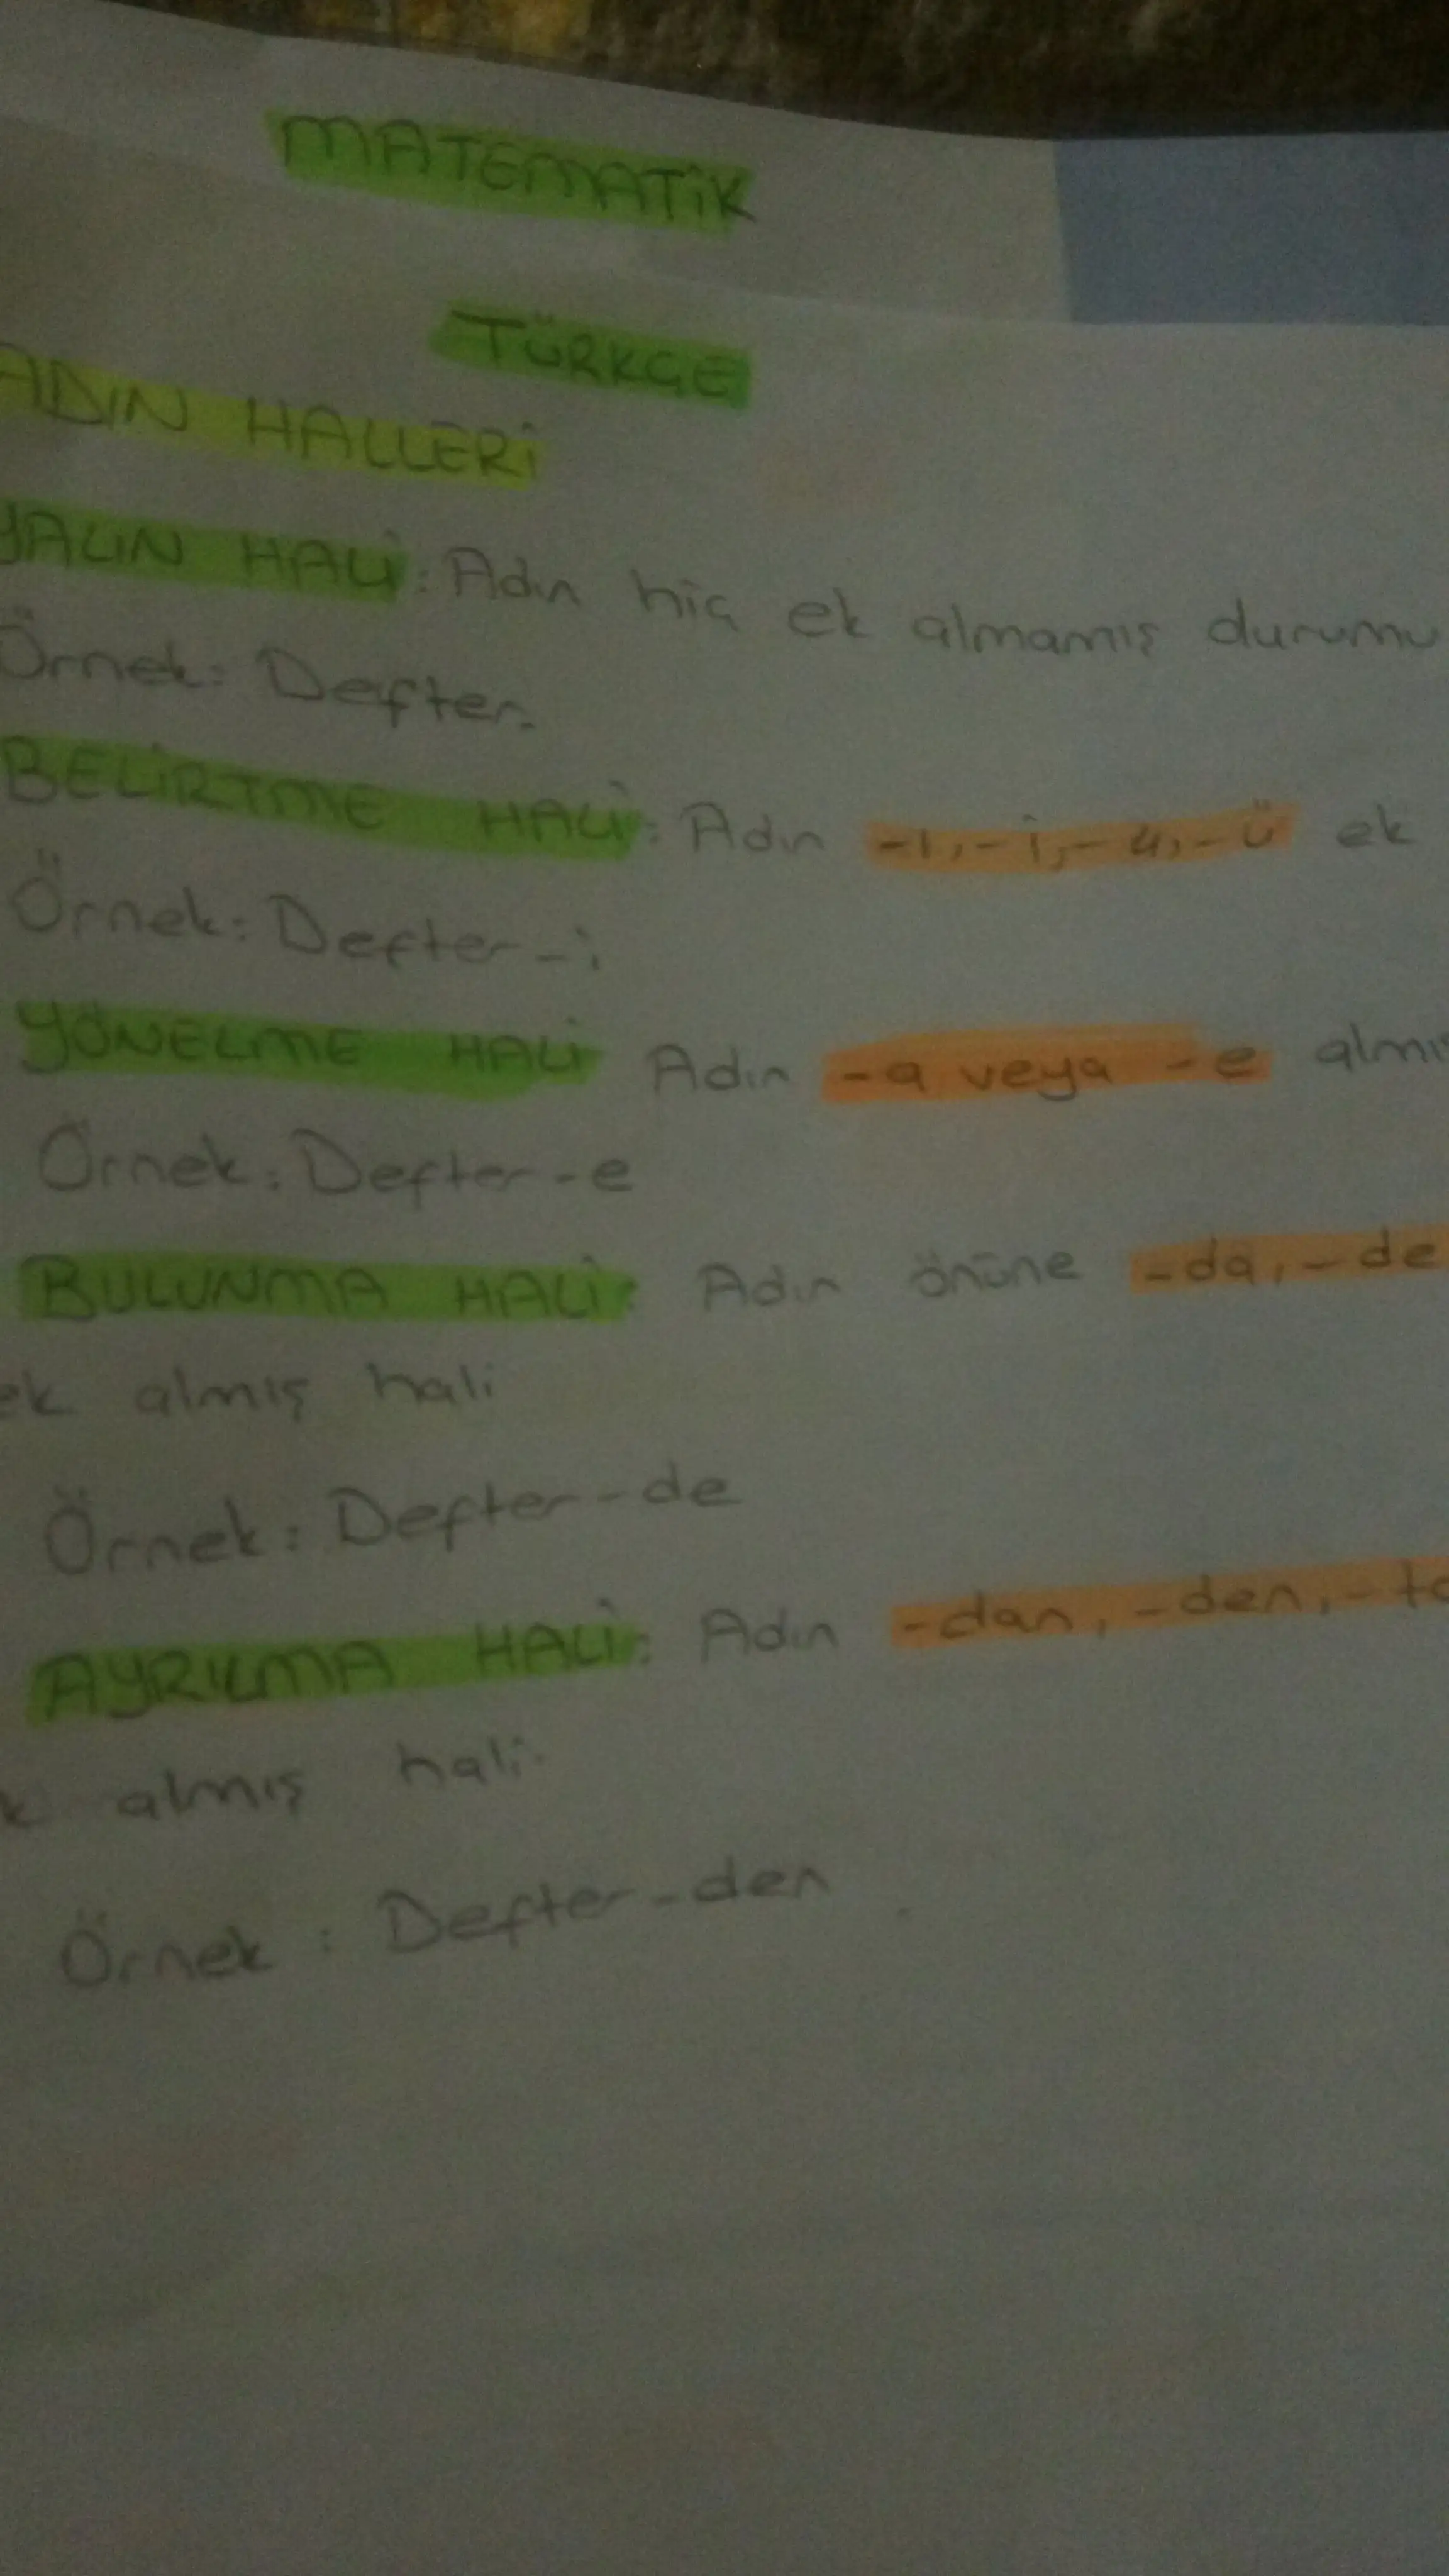 MATEMATİK
TÜRKÇE
ADIN HALLERİ
YALIN HALİ: Adın hiç ek almamış durumu
Örnek: Defter.
BELİRTME HALİ: Adın -ı, -i, -u, -ü ek
Örnek: Defter-i
YÖNELME HALİ Adın -a veya -e almış
Örnek: Defter-e
BULUNMA HALİ: Adın önüne -da, -de
ek almış hali
Örnek: Defter-de
AYRILMA HALİ: Adın -dan, -den,
almış hali.
Örnek: Defter-den